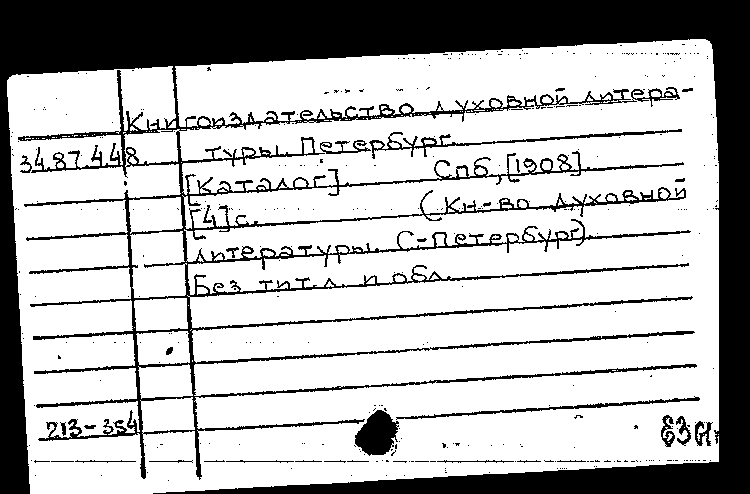 Книгоиздательство духовной литера-
34.87.4.48. туры. Петербург.
[Каталог]. Спб, [1908].
[4]с. (Кн-во духовной
литературы. С-Петербург).
Без тит.л. и обл.
213-354